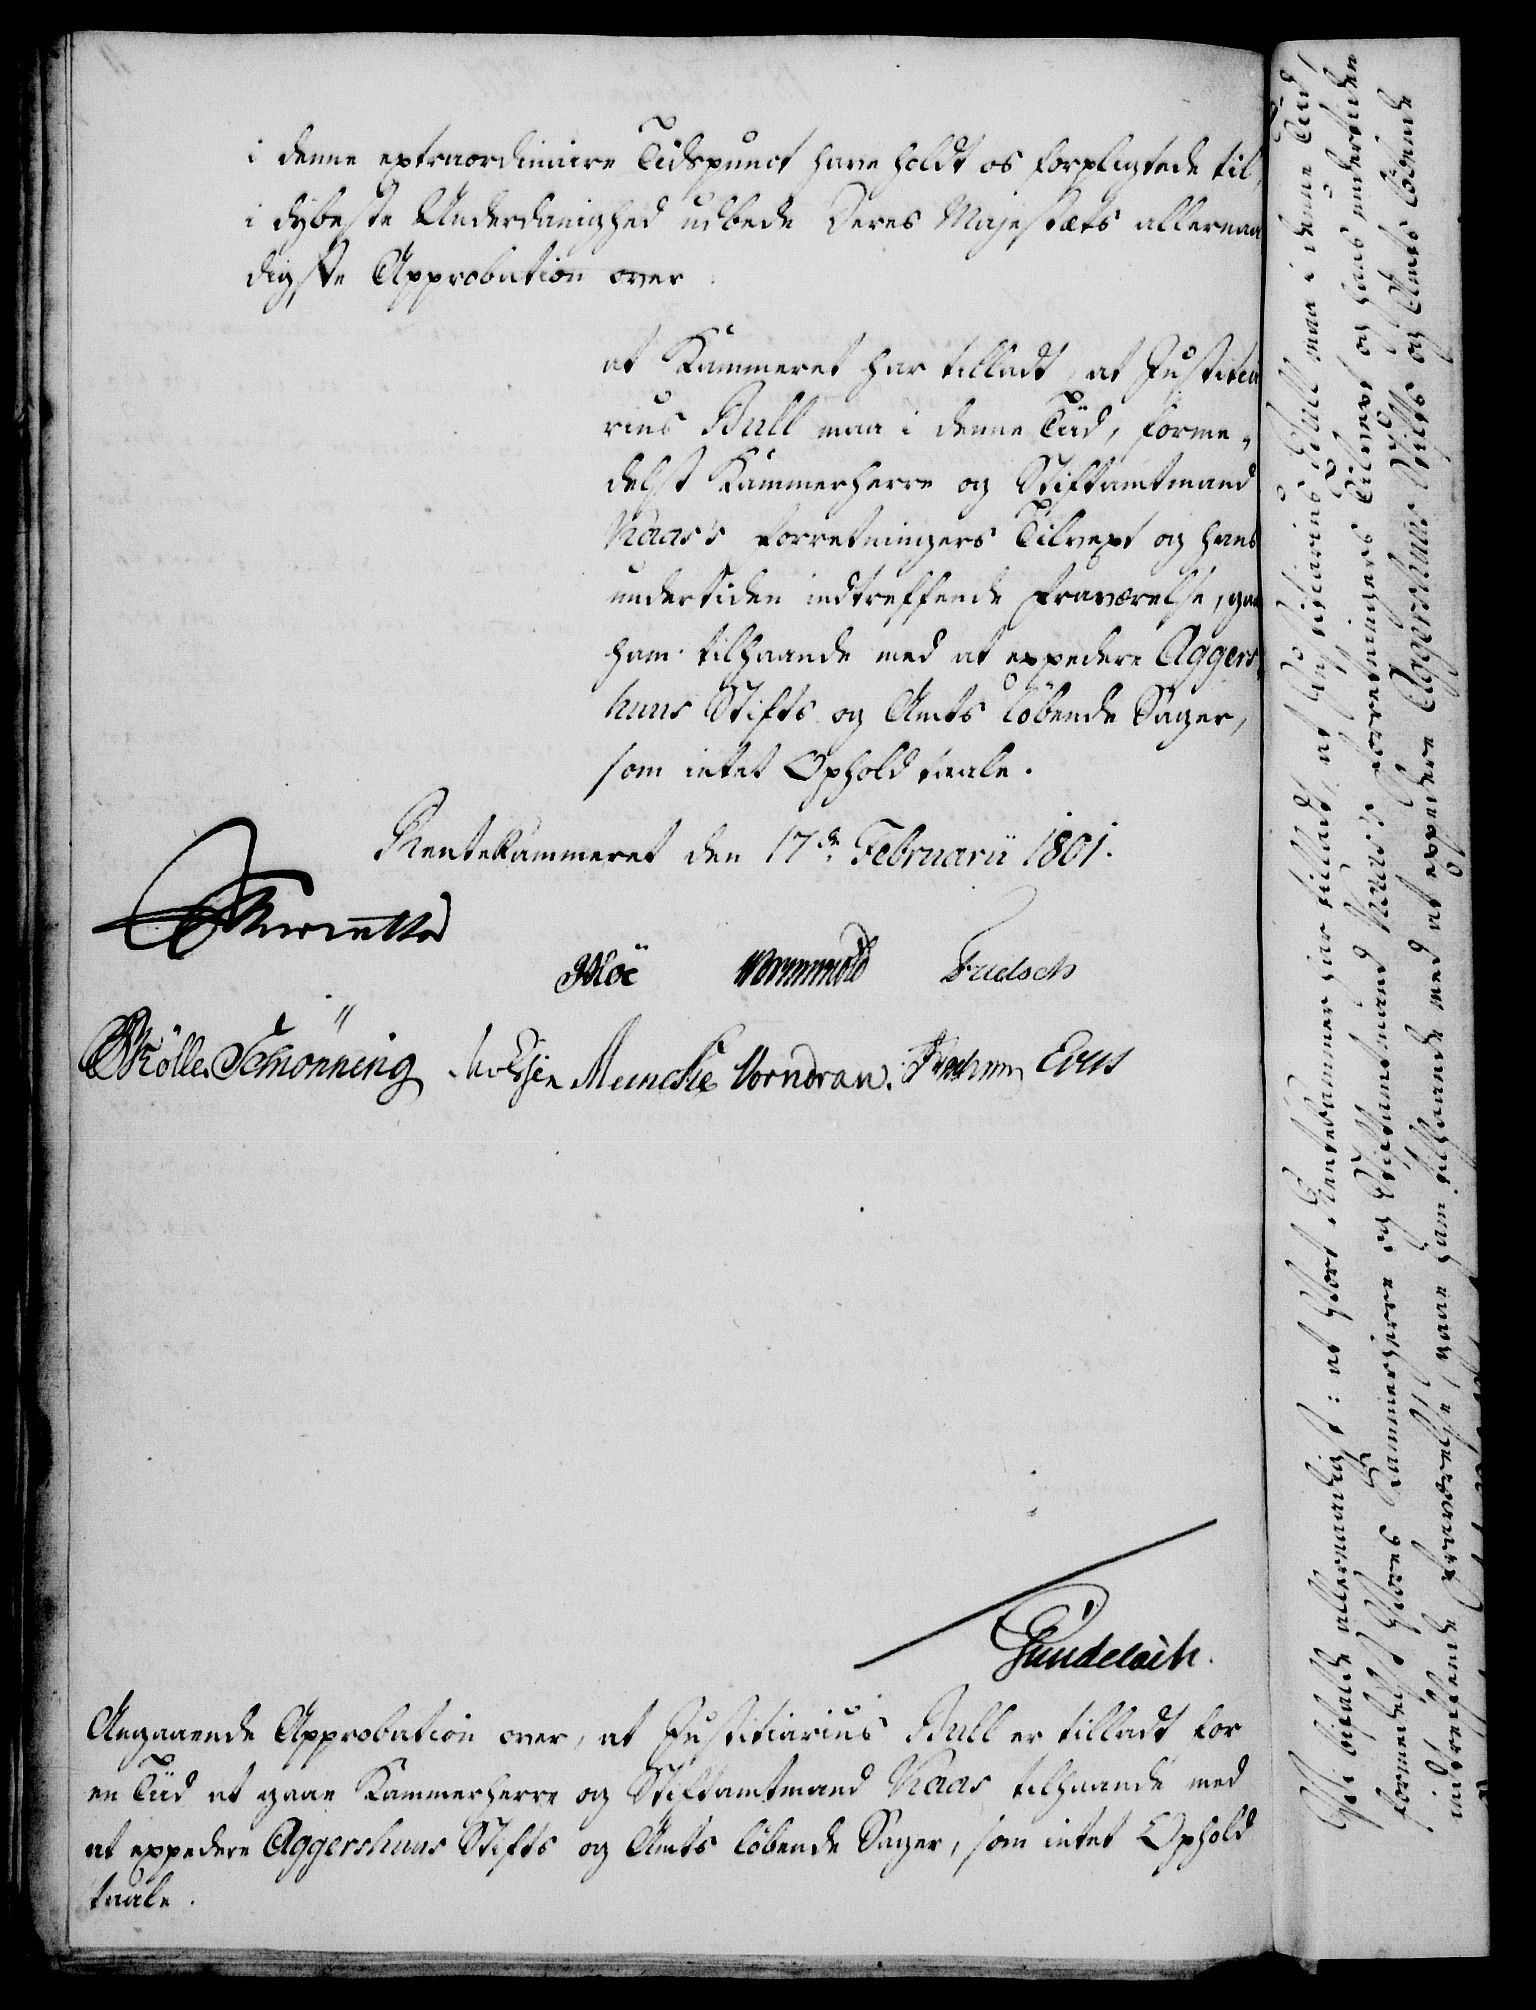 i denne extraordinaire Tidspunct have holdt os forpligtede til,
i dybeste Underdanighed udbede Deres Majestæts allernaa
digste Approbation over
at Kammeret har tilladt, at Justitia
rius Bull maa i denne Tiid, forme-
delst Kammerherre og Stiftamtmand
Kaas's Forretningers Tilvext og hans
undertiden indtreffende Fraværelse, gaa
ham tilhaande med at expedere Aggers-
huus Stifts og Amts løbende Sager,
som intet Ophold taale.
Rentekammeret den 17de Februarii 1801.
Reventlow
Wormskiold Fridsch
Schønning Meincke Vorndran.
Gundelach.
Angaaende Approbation over, at Justitiarius Bull er tilladt for
en Tiid at gaae Kammerherre og Stiftamtmand Kaas tilhaande med
at expedere Aggershuus Stifts og Amts løbende Sager, som intet Ophold
taale.
Vi bifalde allernaadigst: at Vort Rentekammer har tilladt, at Justitiarius Bull maa i denne Tiid,
formedelst Vores Kammerherre og Stiftamtmand Kaas's Forretningers Tilvext og hans undertiden
indtreffende Fraværelse, gaae ham tilhaande med at expedere Aggershuus Stifts og Amts løbende